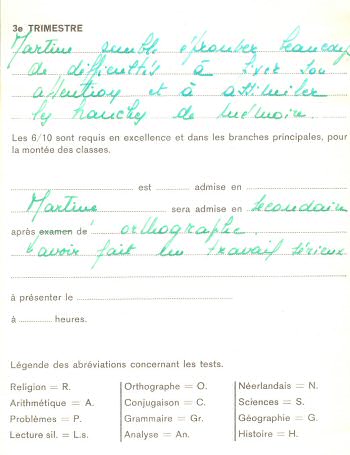 3e TRIMESTRE
Martine semble éprouver beaucoup
de difficultés à fixer son
attention et à assimiler
les branches de mémoire.
Les 6/10 sont requis en excellence et dans les branches principales, pour
la montée des classes.
est admise en
Martine sera admise en secondaire
après examen de orthographe.
avoir fait un travail sérieux
à présenter le
à heures.
Légende des abréviations concernant les tests.
Religion = R. Orthographe = O. Néerlandais = N.
Arithmétique = A. Conjugaison = C. Sciences = S.
Problèmes = P. Grammaire = Gr. Géographie = G.
Lecture sil. = L.s. Analyse = An. Histoire = H.